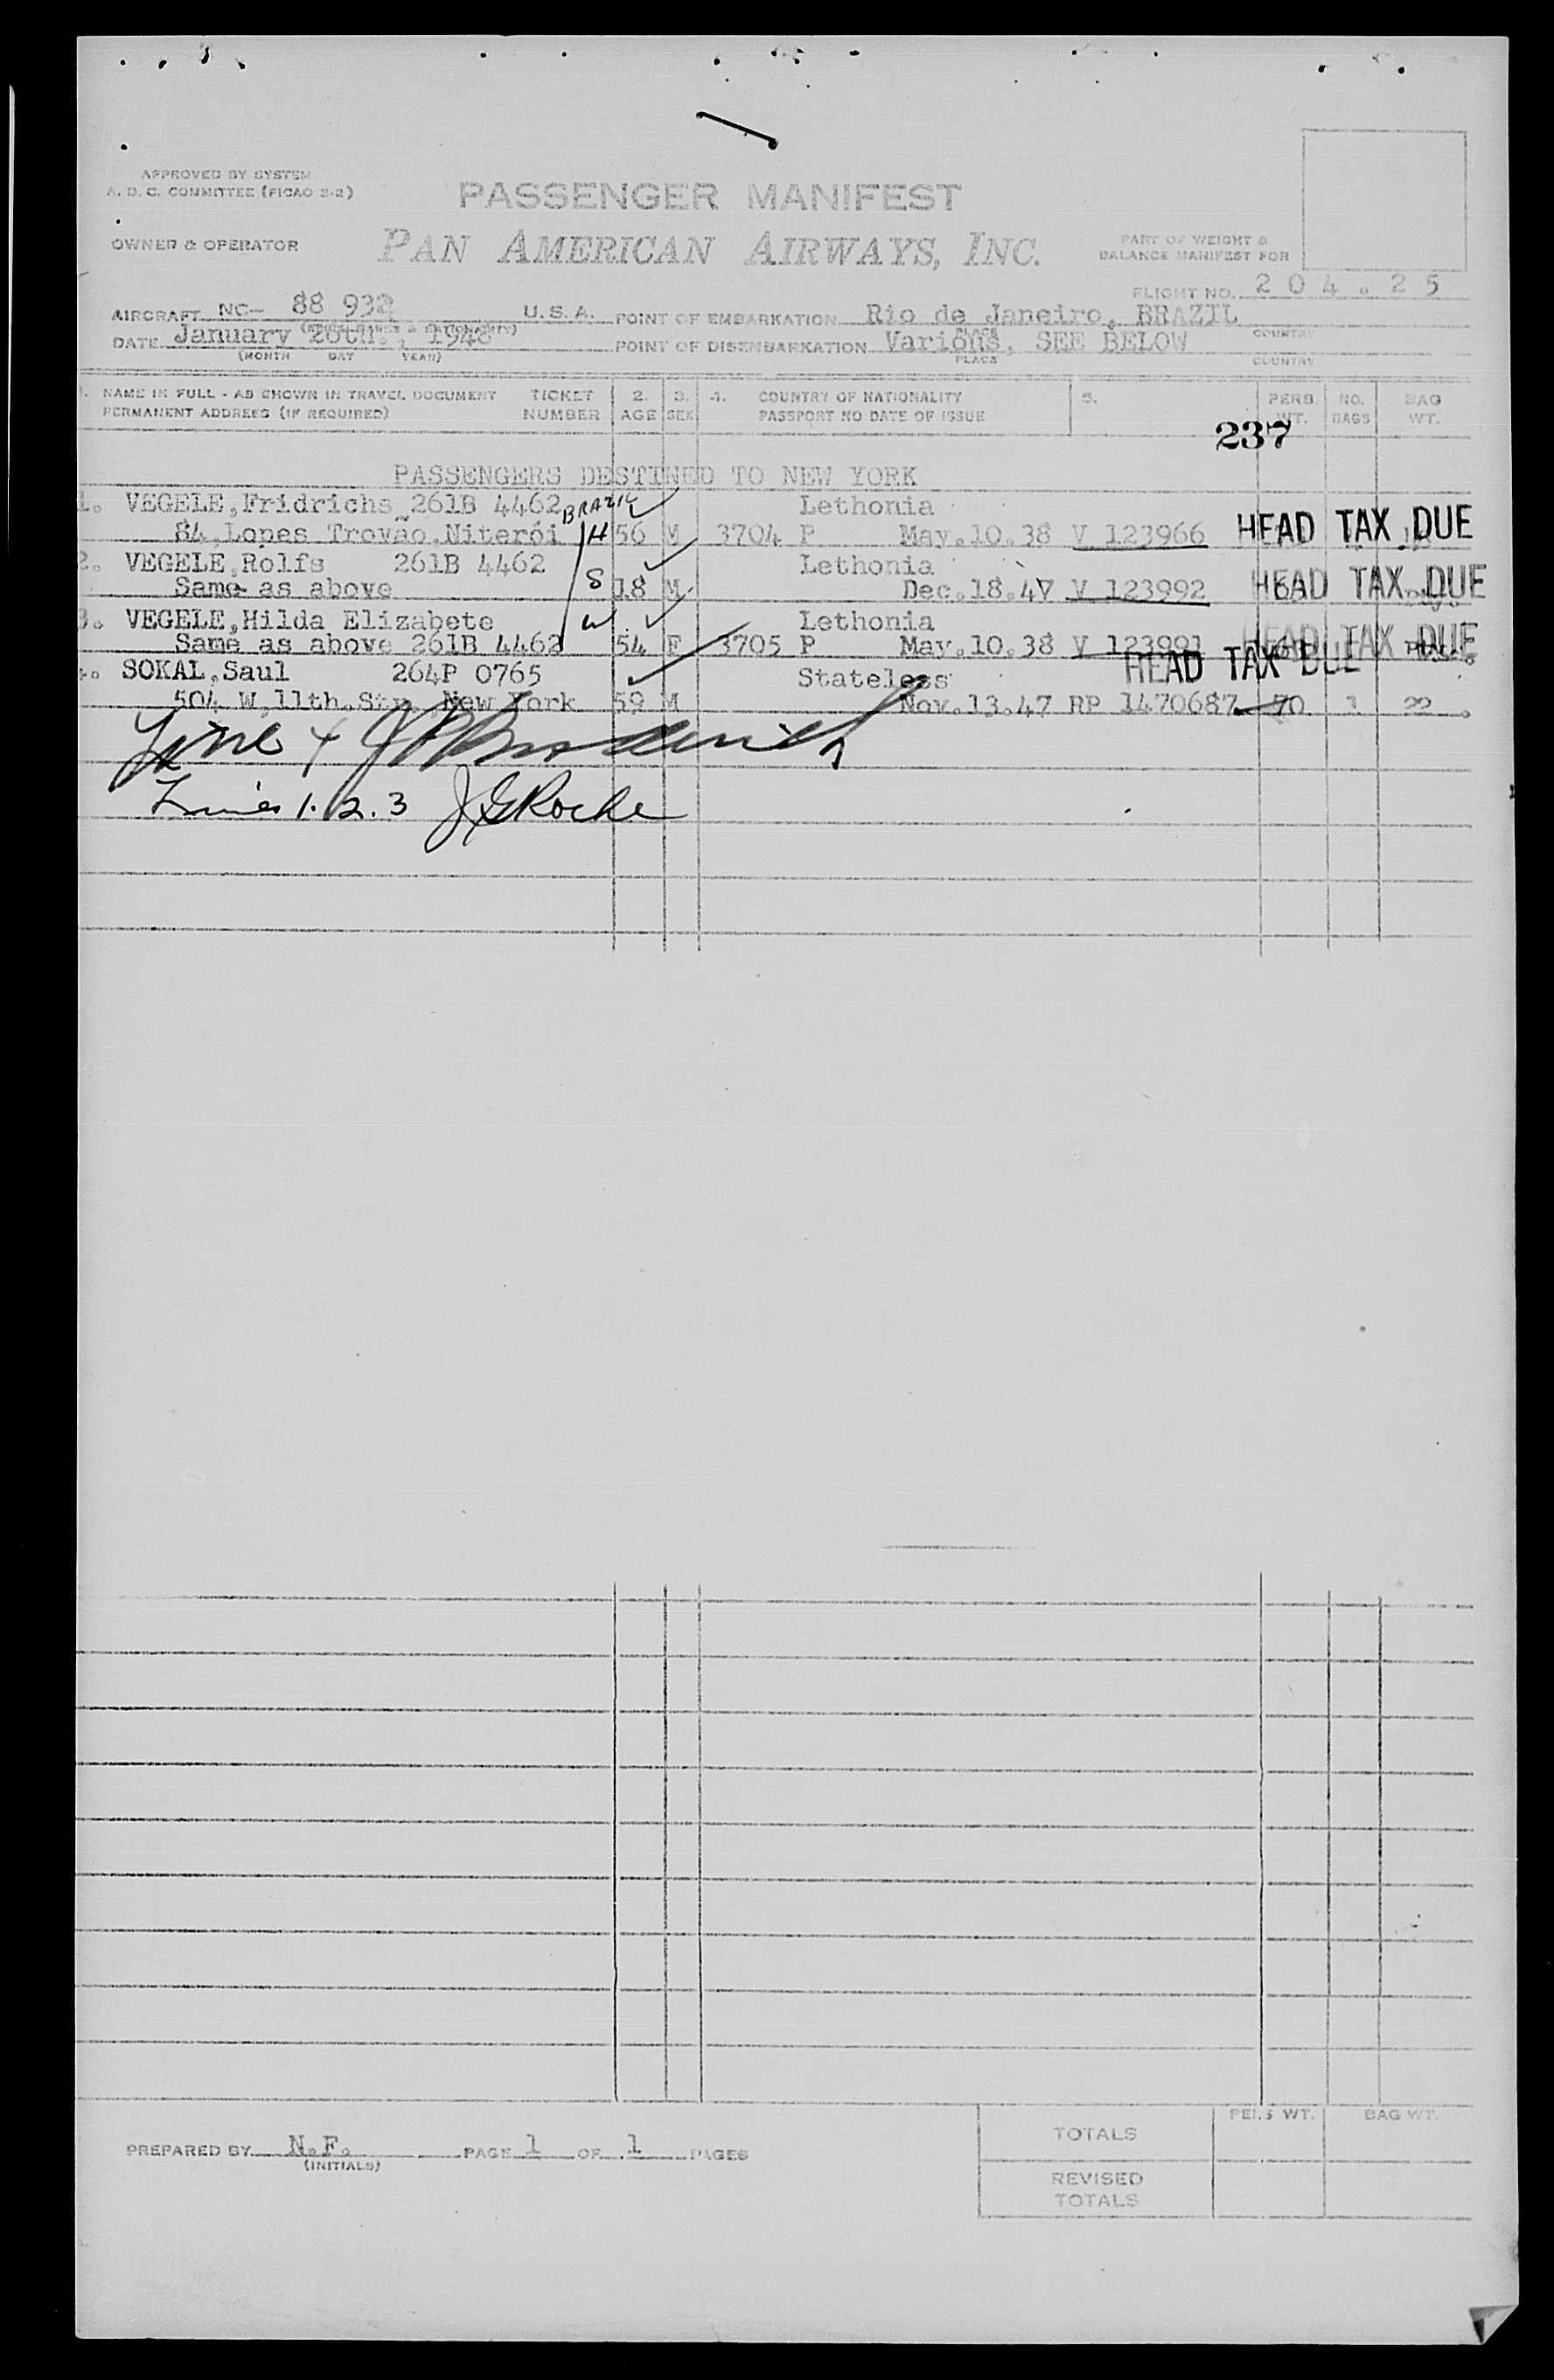 APPROVED BY SYSTEM
A. D. C. COMMITTEE (PICAO 2-2)
PASSENGER MANIFEST
OWNER & OPERATOR PAN AMERICAN AIRWAYS, INC.
PART OF WEIGHT &
BALANCE MANIFEST FOR
FLIGHT NO. 204.25
AIRCRAFT NC- 88 932 U.S.A. POINT OF EMBARKATION Rio de Janeiro, BRAZIL
PLACE COUNTRY
DATE January 1948 POINT OF DISEMBARKATION Various, SEE BELOW
(MONTH DAY YEAR) PLACE COUNTRY
1. NAME IN FULL - AS SHOWN IN TRAVEL DOCUMENT TICKET 2. 3. 4. COUNTRY OF NATIONALITY 5. PERS. NO. BAG
PERMANENT ADDRESS (IF REQUIRED) NUMBER AGE SEX PASSPORT NO DATE OF ISSUE WT. BAGS WT.
237
PASSENGERS DESTINED TO NEW YORK
1. VEGELE,Fridrichs 261B 4462 BRAZIL Lethonia
84,Lopes Trovão,Niterói H 56 M 3704 P May.10.38 V 123966 HEAD TAX DUE
2. VEGELE,Rolfs 261B 4462 Lethonia
Same as above S 18 M Dec.18.47 V 123992 HEAD TAX DUE
3. VEGELE,Hilda Elizabete W Lethonia
Same as above 261B 4462 54 F 3705 P May.10.38 V 123991 HEAD TAX DUE
4. SOKAL,Saul 264P 0765 Stateless HEAD TAX DUE
504 W,11th.Str. New York 59 M Nov.13.47 RP 1470687 70 1 22
Line 4
Lines 1. 2. 3 J G Roche
PREPARED BY N.F. PAGE 1 OF 1 PAGES
(INITIALS)
PERS WT. BAG WT.
TOTALS
REVISED
TOTALS